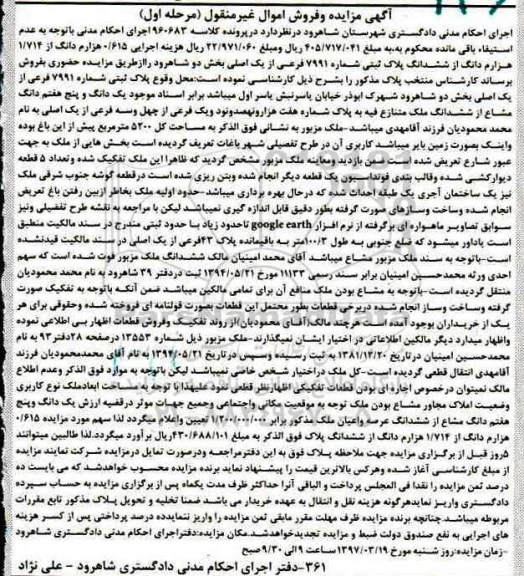 آگهی مزایده وفروش اموال غیرمنقول (مرحله اول)
اجرای احکام مدنی دادگستری شهرستان شاهرود درنظردارد درپرونده کلاسه ۹۶۰۶۸۳ اجرای احکام مدنی باتوجه به عدم
استیفاء باقی مانده محکوم به،به مبلغ ۴۰۵/۷۱۷/۰۴۱ ریال ومبلغ ۲۲/۹۷۱/۰۶۰ ریال هزینه اجرایی ۰/۶۱۵ هزارم دانگ از ۱/۷۱۴
هزارم دانگ از ششدانگ پلاک ثبتی شماره ۷۹۹۱ فرعی از یک اصلی بخش دو شاهرود راازطریق مزایده حضوری بفروش
برساند کارشناس منتخب پلاک مذکور را بشرح ذیل کارشناسی نموده است:محل وقوع پلاک ثبتی شماره ۷۹۹۱ فرعی از
یک اصلی بخش دو شاهرود شهرک ابوذر خیابان یاسرنبش یاسر اول میباشد برابر اسناد موجود یک دانگ و پنج هفتم دانگ
مشاع از ششدانگ ملک متنازع فیه به پلاک شماره هفت هزارونهصدونود ویک فرعی از چهل وسه فرعی از یک اصلی به نام
محمد محمودیان فرزند آقامهدی میباشد-ملک مزبور به نشانی فوق الذکر به مساحت کل ۵۲۰۰ مترمربع پیش از این باغ بوده
واینک بصورت زمین بایر میباشد کاربری آن در طرح تفصیلی شهر باغات تعریف گردیده است بخش هایی از ملک به جهت
عبور شارع تعریض شده است ضمن بازدید ومعاینه ملک مزبور مشخص گردید که ظاهرا این ملک تفکیک شده وتعداد ۵ قطعه
دیوارکشی شده وقالب بندی فونداسیون یک قطعه دیگر انجام شده وبتن ریزی شده است درقطعه گوشه جنوب شرقی ملک
نیز یک ساختمان آجری یک طبقه احداث شده که درحال بهره برداری میباشد-حدود اولیه ملک بخاطر ازبین رفتن باغ تعریض
انجام شده وساخت وسازهای صورت گرفته بطور دقیق قابل اندازه گیری نمیباشد لیکن با مراجعه به نقشه طرح تفصیلی ونیز
سوابق تصاویر ماهواره ای برگرفته از نرم افزار google earth تاحدود زیاد با حدود ثبتی مندرج در سند مالکیت منطبق
است یاداور میشود که ضلع جنوبی به طول ۱۰۰/۳متر به باقیمانده پلاک ۴۳فرعی از یک اصلی در سند مالکیت قیدنشده
است-باتوجه به سند ملک مزبور مشاع میباشد آقای محمد امینیان مالک ششدانگ ملک مزبور فوت شده است که سهم
احدی ورثه محمدحسین امینیان برابر سند رسمی ۱۱۱۳۳ مورخ ۱۳۹۴/۰۵/۲۱ ثبت دردفتر ۳۹ شاهرود به نام محمد محمودیان
منتقل گردیده است-باتوجه به مشاع بودن ملک منافع آن برای تمامی مالکین میباشد ضمن آنکه باتوجه به تفکیک صورت
گرفته وساخت وساز انجام شده دربرخی قطعات بطور محتمل این قطعات بصورت قولنامه ای فروخته شده وحقوقی برای هر
یک از خریداران بوجود آمده است هرچند مالک(آقای محمودیان)از روند تفکیک وفروش قطعات اظهار بی اطلاعی نموده
واظهار میدارد دیگر مالکین اطلاعاتی در اختیار ایشان نمیگذارند-ملک مزبور ذیل شماره ۱۳۵۵۳ درصفحه ۲۸دفتر ۹۳ به نام
محمدحسین امینیان درتاریخ ۱۳۸۱/۱۲/۲۰ به ثبت رسیده وسپس در تاریخ ۱۳۹۴/۰۵/۲۱ به نام آقای محمدمحمودیان فرزند
آقامهدی انتقال قطعی گردیده است-کل ملک دراختیار شخص خاصی نمیباشد لیکن باتوجه به موارد فوق الذکر وعدم اطلاع
مالک نمیتوان درخصوص اجاره ای بودن قطعات تفکیکی اظهارنظر قطعی نمود علیهذا با توجه به مساحت ابعادملک نوع کاربری
وضعیت املاک مجاور مشاع بودن ملک توجه به موقعیت مکانی واجتماعی وجمیع جهات موثر درقضیه ارزش یک دانگ وپنج
هفتم دانگ مشاع از ششدانگ عرصه واعیان ملک مذکور برابر ۱/۲۰۰/۰۰۰/۰۰۰ تعیین واعلام میگردد لذا سهم مورد مزایده ۰/۶۱۵
هزارم دانگ از ۱/۷۱۴ هزارم دانگ از ششدانگ پلاک فوق الذکر به مبلغ ۴۳۰/۶۸۸/۱۰۱ریال برآورد میگردد.لذا طالبین میتوانند
۵روز قبل از برگزاری مزایده جهت ملاحظه پلاک فوق به این دفترمراجعه ودرصورت تمایل درمزایده شرکت نمایند مزایده
از مبلغ کارشناسی آغاز شده وهرکس بالاترین قیمت را پیشنهاد نماید برنده مزایده محسوب خواهدشد که می بایست ده
درصد ثمن مزایده را نقدا فی المجلس پرداخت و الباقی آنرا حداکثر ظرف مدت یکماه پس از برگزاری مزایده به حساب سپرده
دادگستری واریز نمایدهرگونه هزینه نقل و انتقال به عهده خریدار می باشد ضمنا تخلیه و تحویل پلاک مذکور تابع مقررات
مربوطه میباشد.چنانچه برنده مزایده ظرف مهلت مقرر مابقی ثمن مزایده را واریز ننمایدده درصد پرداختی پس از کسر هزینه
های اجرایی به نفع صندوق دولت ضبط و مزایده تجدیدخواهدشد.مکان مزایده:دفتراجرای احکام مدنی دادگستری شاهرود
-زمان مزایده:روز شنبه مورخ ۱۳۹۷/۰۳/۱۹ ساعت ۹ الی ۹/۳۰ صبح
۳۶۱-دفتر اجرای احکام مدنی دادگستری شاهرود - علی نژاد